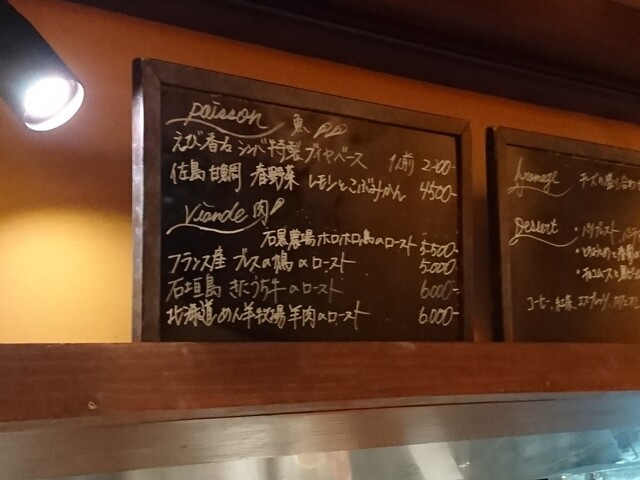 Poisson 魚
えび香る シンバ特製ブイヤベース 1人前 2400-
佐島 甘鯛 春野菜 レモンとこぶみかん 4500-
Viande 肉
石黒農場 ホロホロ鳥のロースト 5500-
フランス産 ブレスの鳩のロースト 5000-
石垣島 きたうち牛のロースト 6000-
北海道 めん羊牧場 羊肉のロースト 6000-
fromage
チーズの盛り合わせ
Dessert
・パリブレスト
コーヒー、紅茶、エスプレッソ、